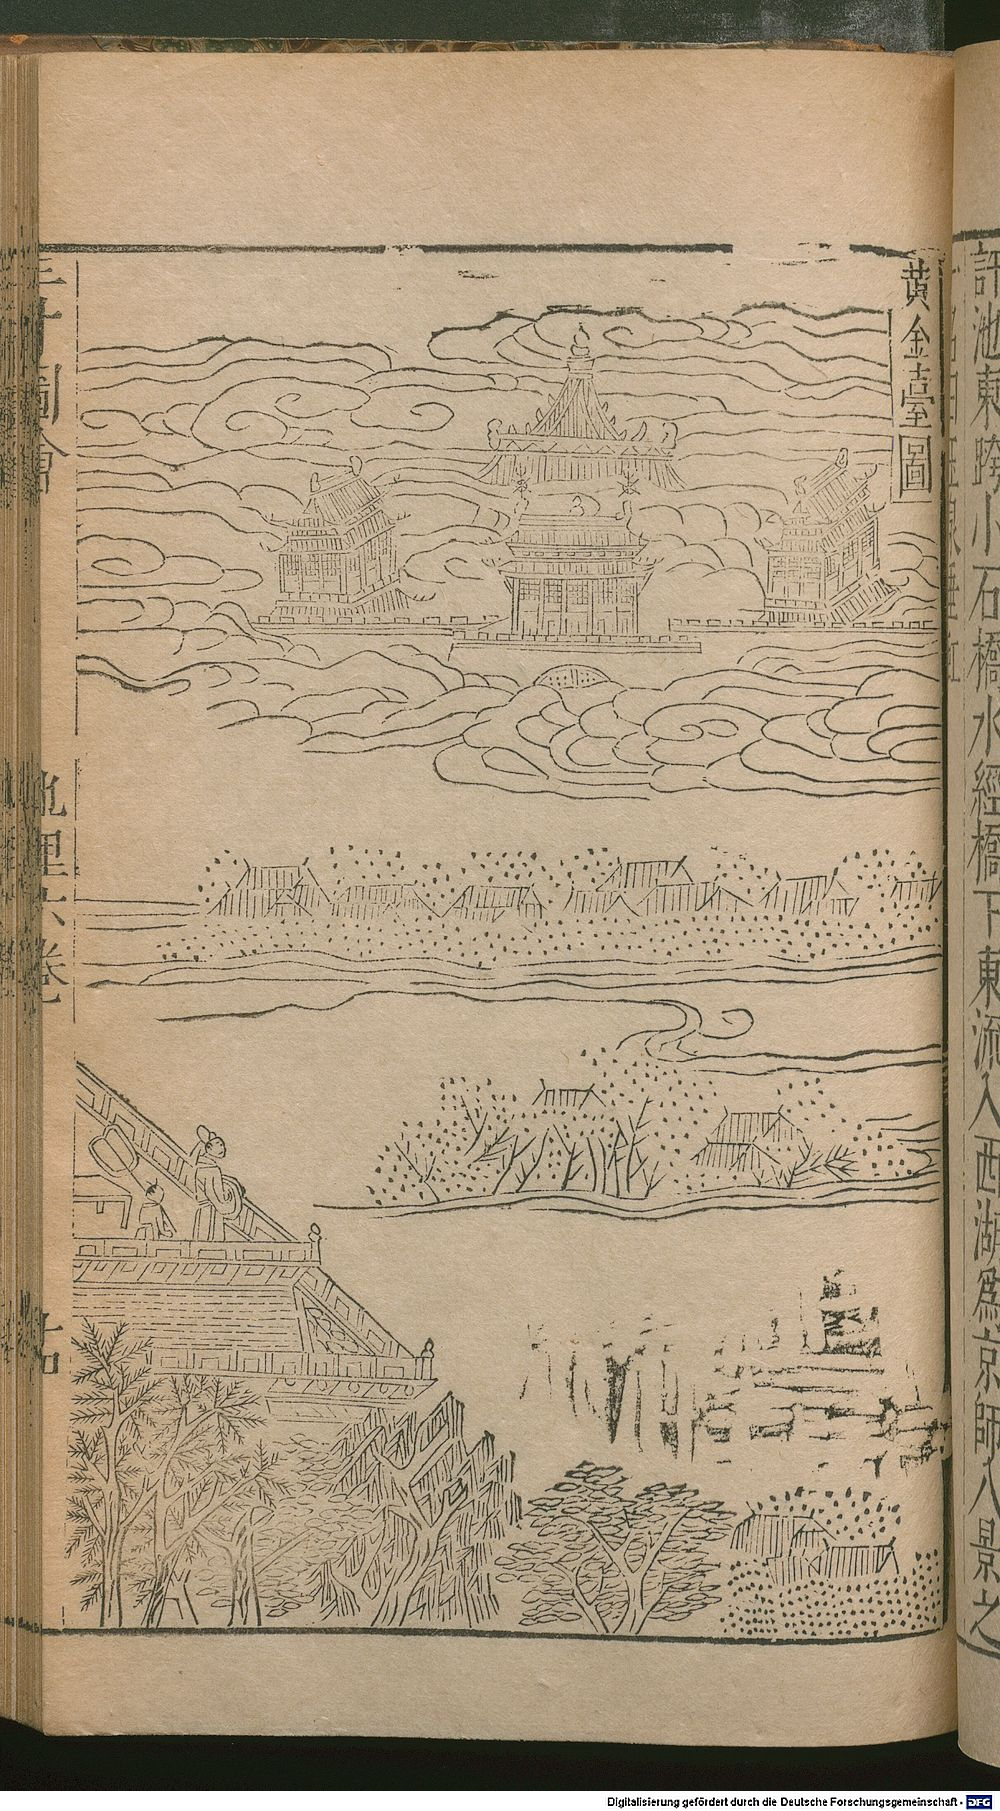 許池東跨小石橋水經橋下東流入西湖為京師八景之
黃金臺圖
三才圖會
地理六卷
Digitalisierung gefördert durch die Deutsche Forschungsgemeinschaft - DFG